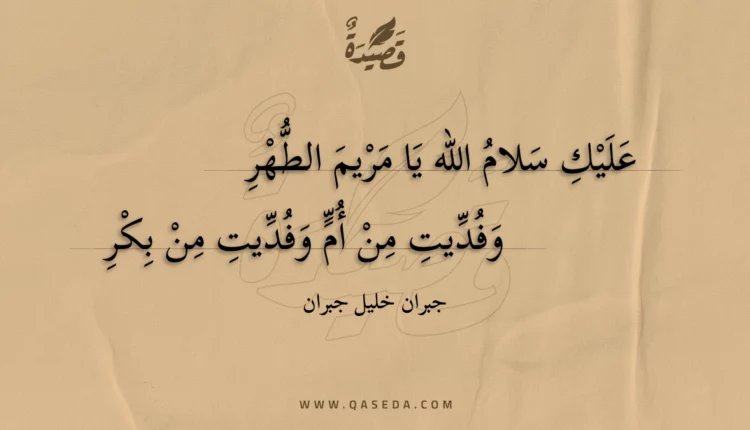 قَصِيدَةٌ
عَلَيْكِ سَلامُ الله يَا مَرْيمَ الطُّهْرِ
وَفُدِّيتِ مِنْ أُمٍّ وَفُدِّيتِ مِنْ بِكْرِ
جبران خليل جبران
WWW.QASEDA.COM